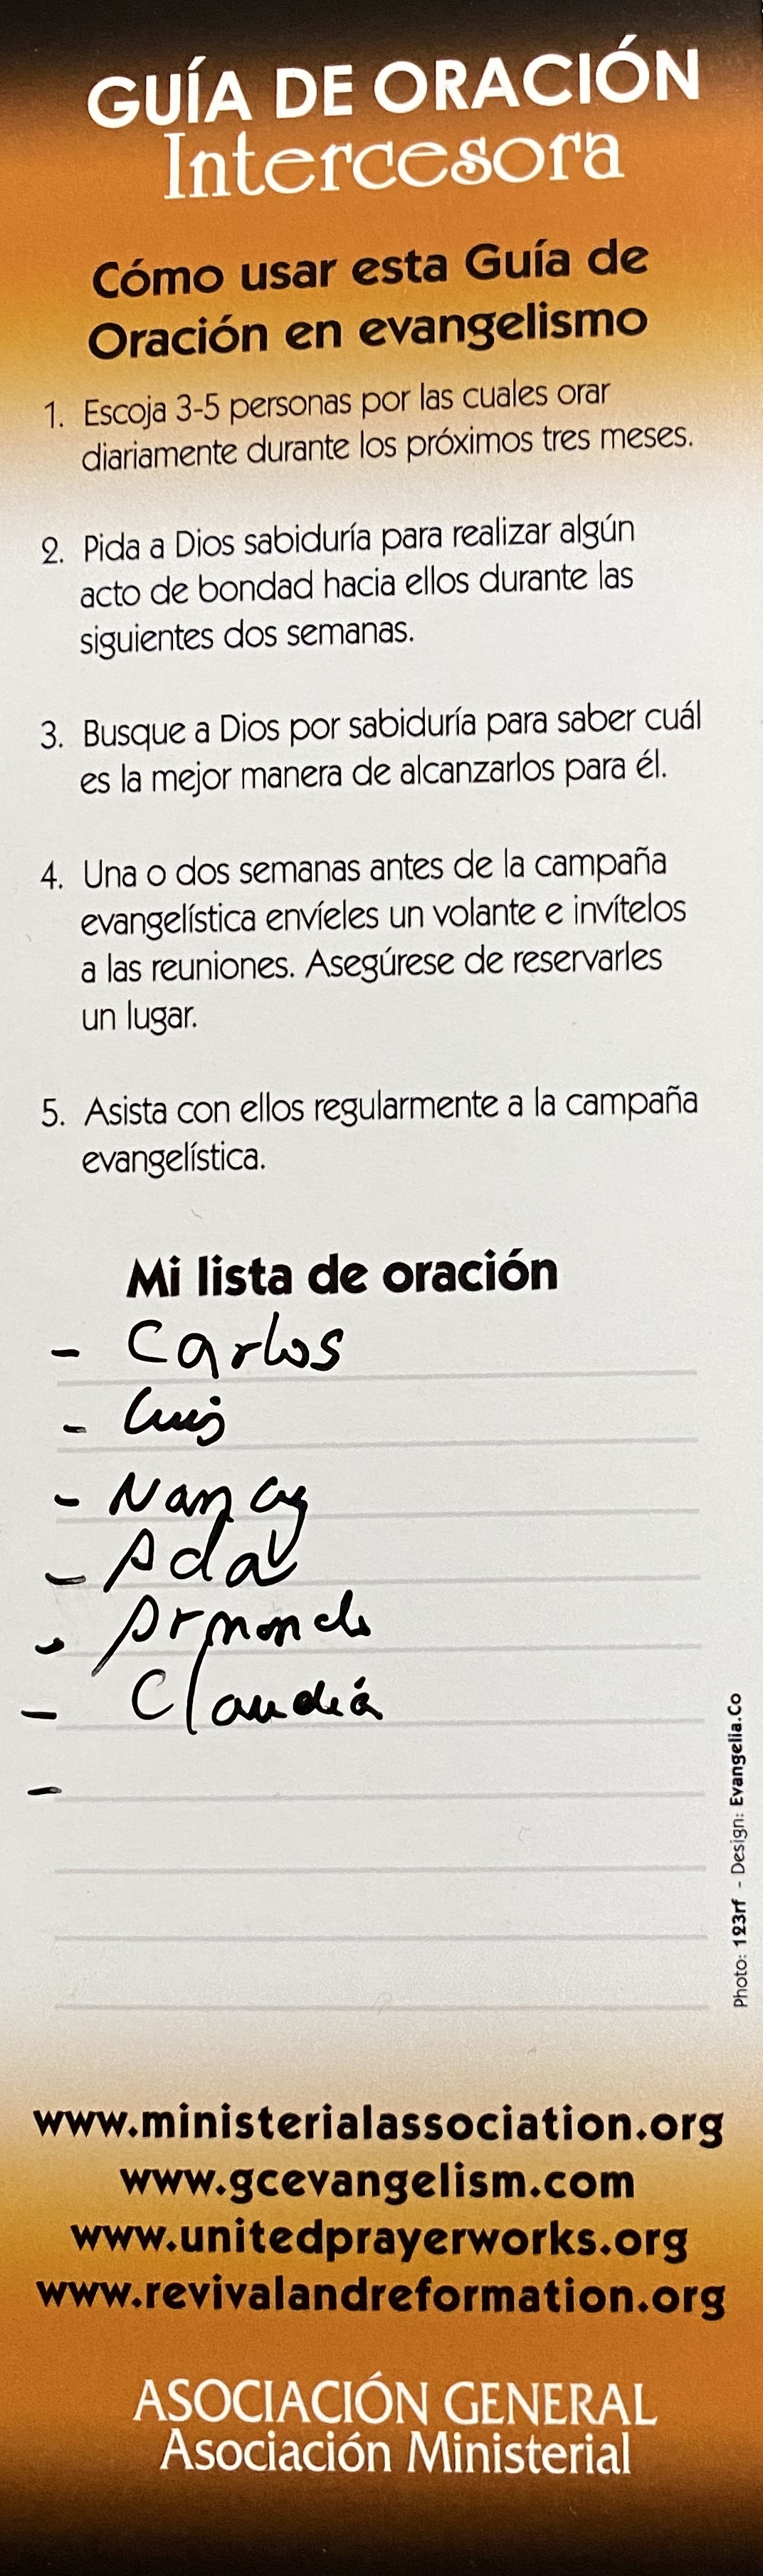 GUÍA DE ORACIÓN
Intercesora
Cómo usar esta Guía de
Oración en evangelismo
1. Escoja 3-5 personas por las cuales orar
diariamente durante los próximos tres meses.
2. Pida a Dios sabiduría para realizar algún
acto de bondad hacia ellos durante las
siguientes dos semanas.
3. Busque a Dios por sabiduría para saber cuál
es la mejor manera de alcanzarlos para él.
4. Una o dos semanas antes de la campaña
evangelística envíeles un volante e invítelos
a las reuniones. Asegúrese de reservarles
un lugar.
5. Asista con ellos regularmente a la campaña
evangelística.
Mi lista de oración
- Carlos
- Luis
- Nancy
- Ada
- Armando
- Claudia
-
Photo: 123rf - Design: Evangelia.Co
www.ministerialassociation.org
www.gcevangelism.com
www.unitedprayerworks.org
www.revivalandreformation.org
ASOCIACIÓN GENERAL
Asociación Ministerial